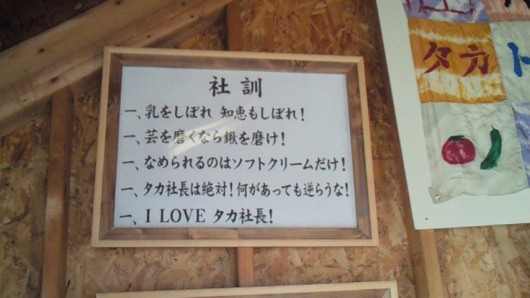 社訓
一、乳をしぼれ 知恵もしぼれ！
一、芸を磨くなら鍬を磨け！
一、なめられるのはソフトクリームだけ！
一、タカ社長は絶対！何があっても逆らうな！
一、I LOVE タカ社長！
タカト